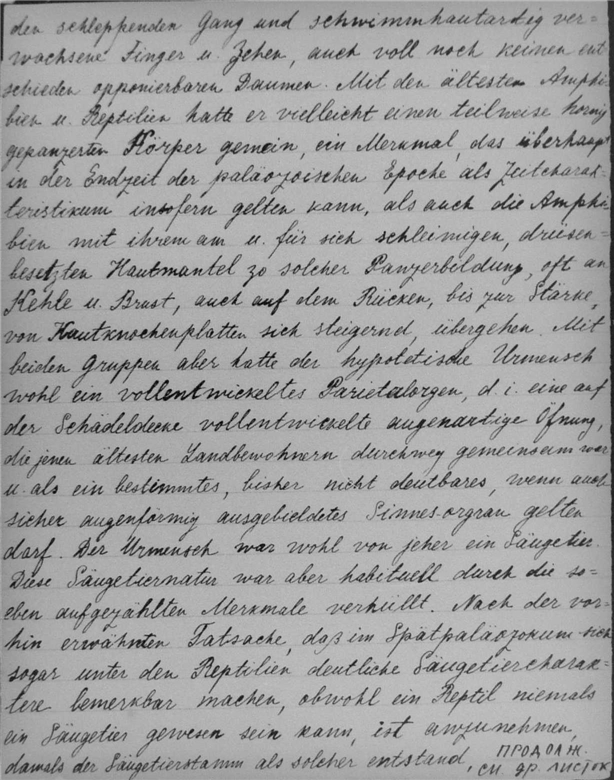 den schleppenden Gang und schwimmhautartig ver=
wachsene Finger u. Zehen, auch voll noch keinen ent
schieden opponierbaren Daumen. Mit den ältesten Amphi-
bien u. Reptilien hatte er vielleicht einen teilweise hornig
gepanzerten Körper gemein, ein Merkmal, das überhaupt
in der Endzeit der paläozoischen Epoche als Zeitcharak-
teristikum insofern gelten kann, als auch die Amphi
bien mit ihrem am u. für sich schleimigen, drüsen=
besetzten Hautmantel zo solcher Panzerbildung, oft an
Kehle u. Brust, auch auf dem Rücken, bis zur Stärke,
von Hautknochenplatten sich steigernd, übergehen. Mit
beiden Gruppen aber hatte der hypotetische Urmensch
wohl ein vollentwickeltes Parietalorgen, d. i. eine auf
der Schädeldecke vollentwickelte augenartige Öfnung,
die jenen ältesten Landbewohnern durchweg gemeinsam war
u. als ein bestimmtes, bisher nicht deutbares, wenn auch
sicher augenförmig ausgebieldetes Sinnes-orgran gelten
darf. Der Urmensch war wohl von jeher ein Säugetier.
Diese Säugetiernatur war aber habituell durch die so=
eben aufgezählten Merkmale verhüllt. Nach der vor-
hin erwähnten Tatsache, daß im Spätpaläozokum sich
sogar unter den Reptilien deutliche Säugetiercharak=
tere bemerkbar machen, obwohl ein Reptil niemals
ein Säugetier gewesen sein kann, ist anzunehmen,
damals der Säugetierstamm als solcher entstand,
ПРОДОЛЖ.
см. др. листок